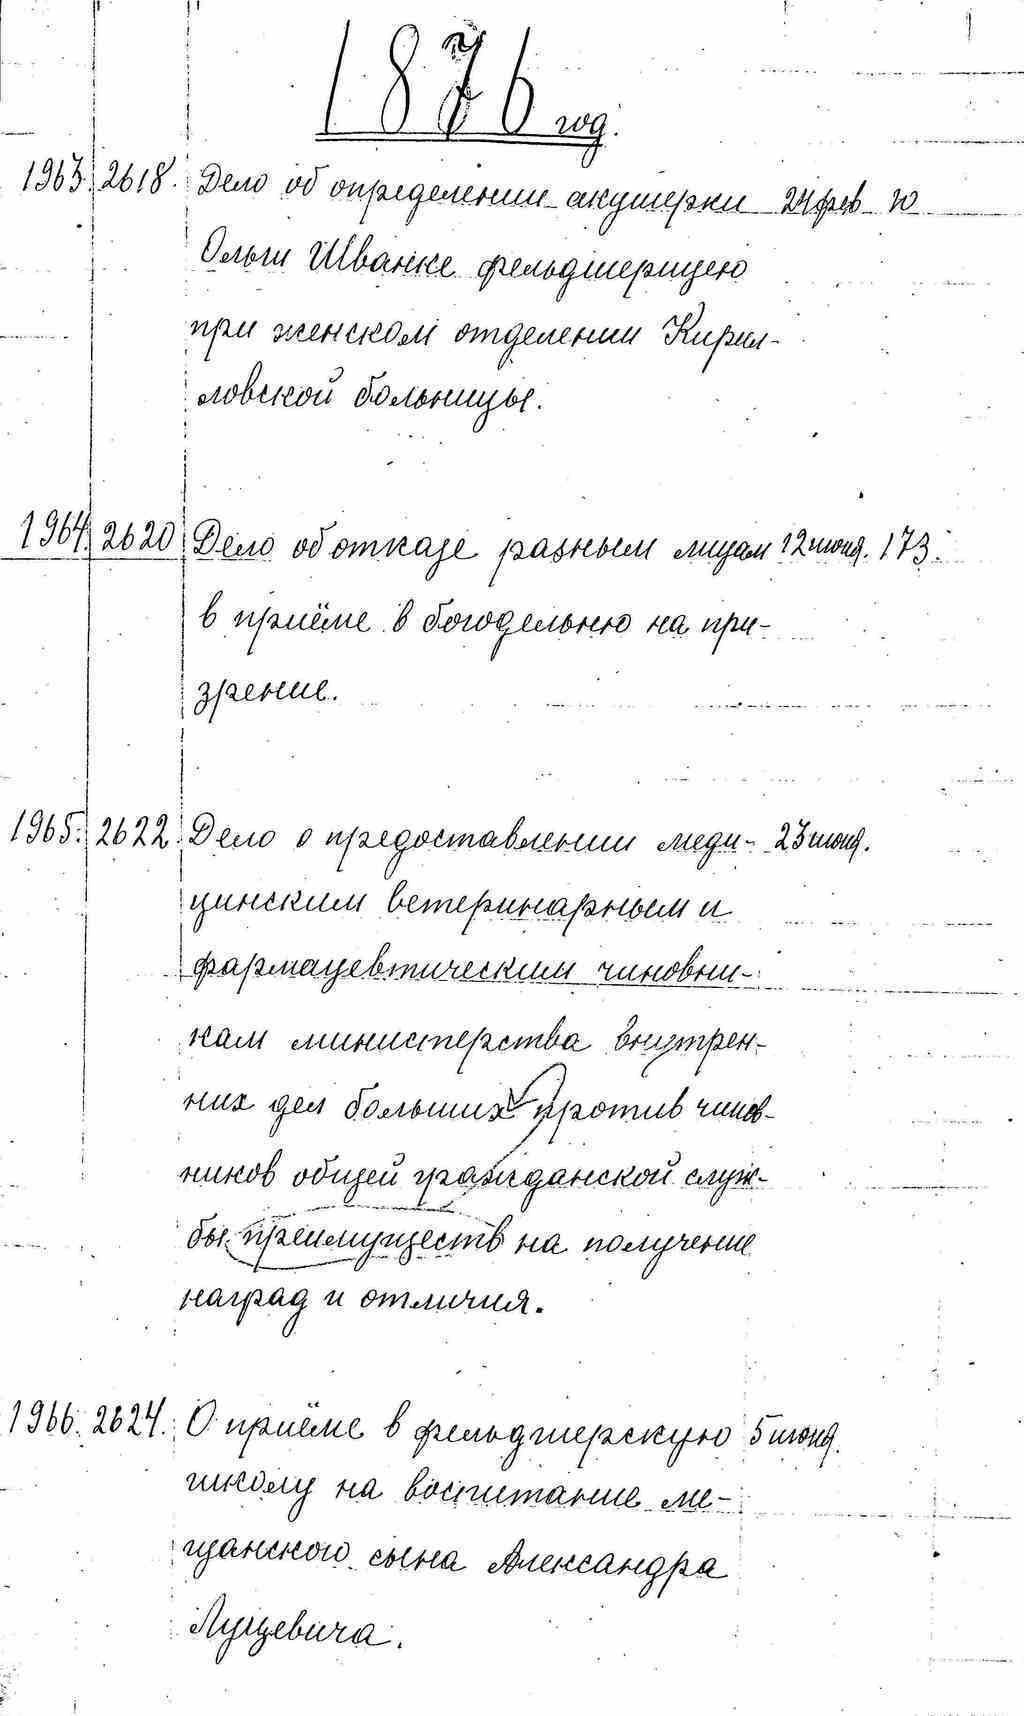 1876 год.
1963. 2618. Дело об определении акушерки 24 фев 10
Ольги Шванке фельдшерицею
при женском отделении Кирил-
ловской больницы.
1964. 2620 Дело об отказе разным лицам 12 июня. 173.
в приёме в богодельню на при-
зрение.
1965. 2622. Дело о предоставлении меди- 23 июня.
цинским ветеринарным и
фармацевтическим чиновни-
кам министерства внутрен-
них дел больших против чинов-
ников общей гражданской служ-
бы преимуществ на получение
наград и отличия.
1966. 2624. О приёме в фельдшерскую 5 июня.
школу на воспитание ме-
щанского сына Александра
Луцевича.